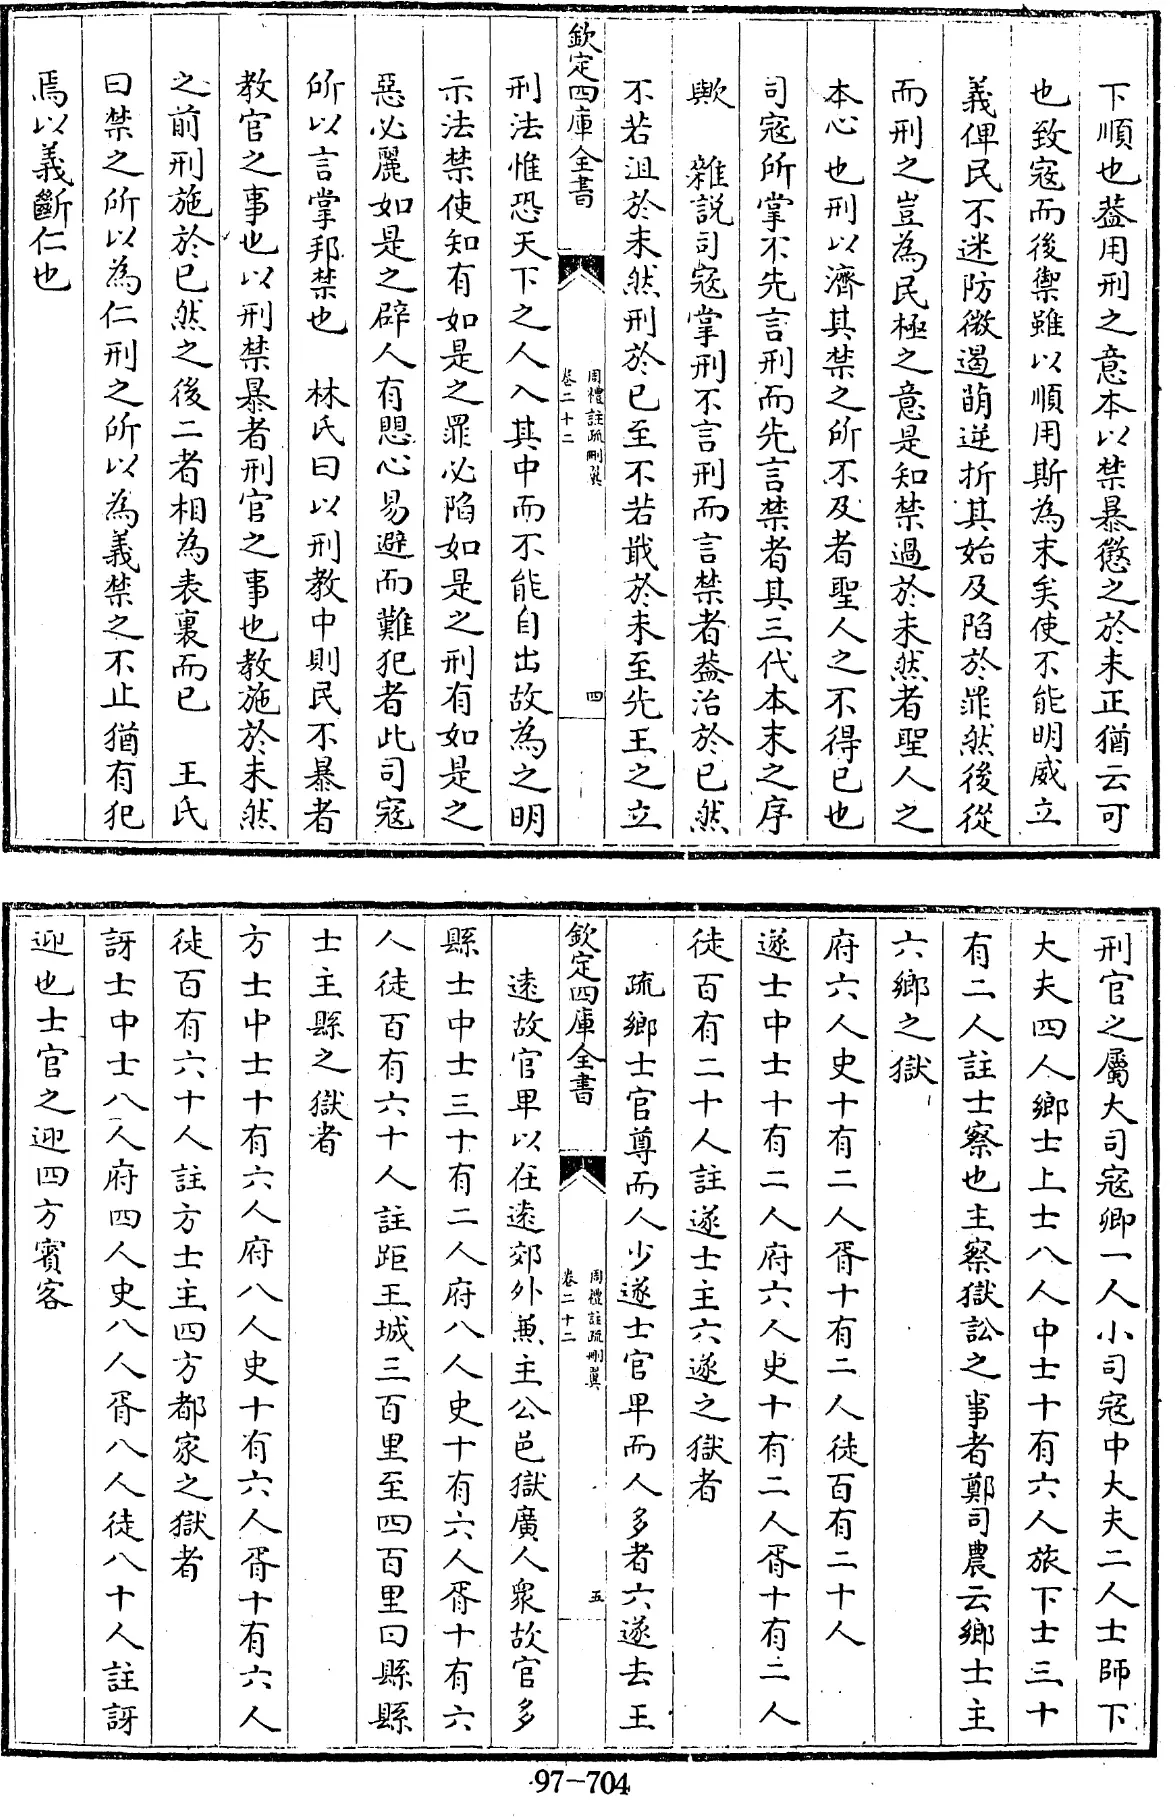 下順也葢用刑之意本以禁暴懲之於未正猶云可
也致寇而後禦雖以順用斯為末矣使不能明威立
義俾民不迷防微遏萌逆折其始及陷於罪然後從
而刑之豈為民極之意是知禁過於未然者聖人之
本心也刑以濟其禁之所不及者聖人之不得已也
司寇所掌不先言刑而先言禁者其三代本末之序
歟　雜説司寇掌刑不言刑而言禁者葢治於已然
不若沮於未然刑於已至不若戢於未至先王之立
欽定四庫全書
周禮註疏刪翼
卷二十二
四
刑法惟恐天下之人入其中而不能自出故為之明
示法禁使知有如是之罪必陷如是之刑有如是之
惡必麗如是之辟人有愳心易避而難犯者此司寇
所以言掌邦禁也　林氏曰以刑教中則民不暴者
教官之事也以刑禁暴者刑官之事也教施於未然
之前刑施於已然之後二者相為表裏而已　王氏
曰禁之所以為仁刑之所以為義禁之不止猶有犯
焉以義斷仁也
刑官之屬大司寇卿一人小司寇中大夫二人士師下
大夫四人鄉士上士八人中士十有六人旅下士三十
有二人註士察也主察獄訟之事者鄭司農云鄉士主
六鄉之獄
府六人史十有二人胥十有二人徒百有二十人
遂士中士十有二人府六人史十有二人胥十有二人
徒百有二十人註遂士主六遂之獄者
疏鄉士官尊而人少遂士官卑而人多者六遂去王
欽定四庫全書
周禮註疏刪翼
卷二十二
五
遠故官卑以在遠郊外兼主公邑獄廣人衆故官多
縣士中士三十有二人府八人史十有六人胥十有六
人徒百有六十人註距王城三百里至四百里曰縣縣
士主縣之獄者
方士中士十有六人府八人史十有六人胥十有六人
徒百有六十人註方士主四方都家之獄者
訝士中士八人府四人史八人胥八人徒八十人註訝
迎也士官之迎四方賓客
97-704